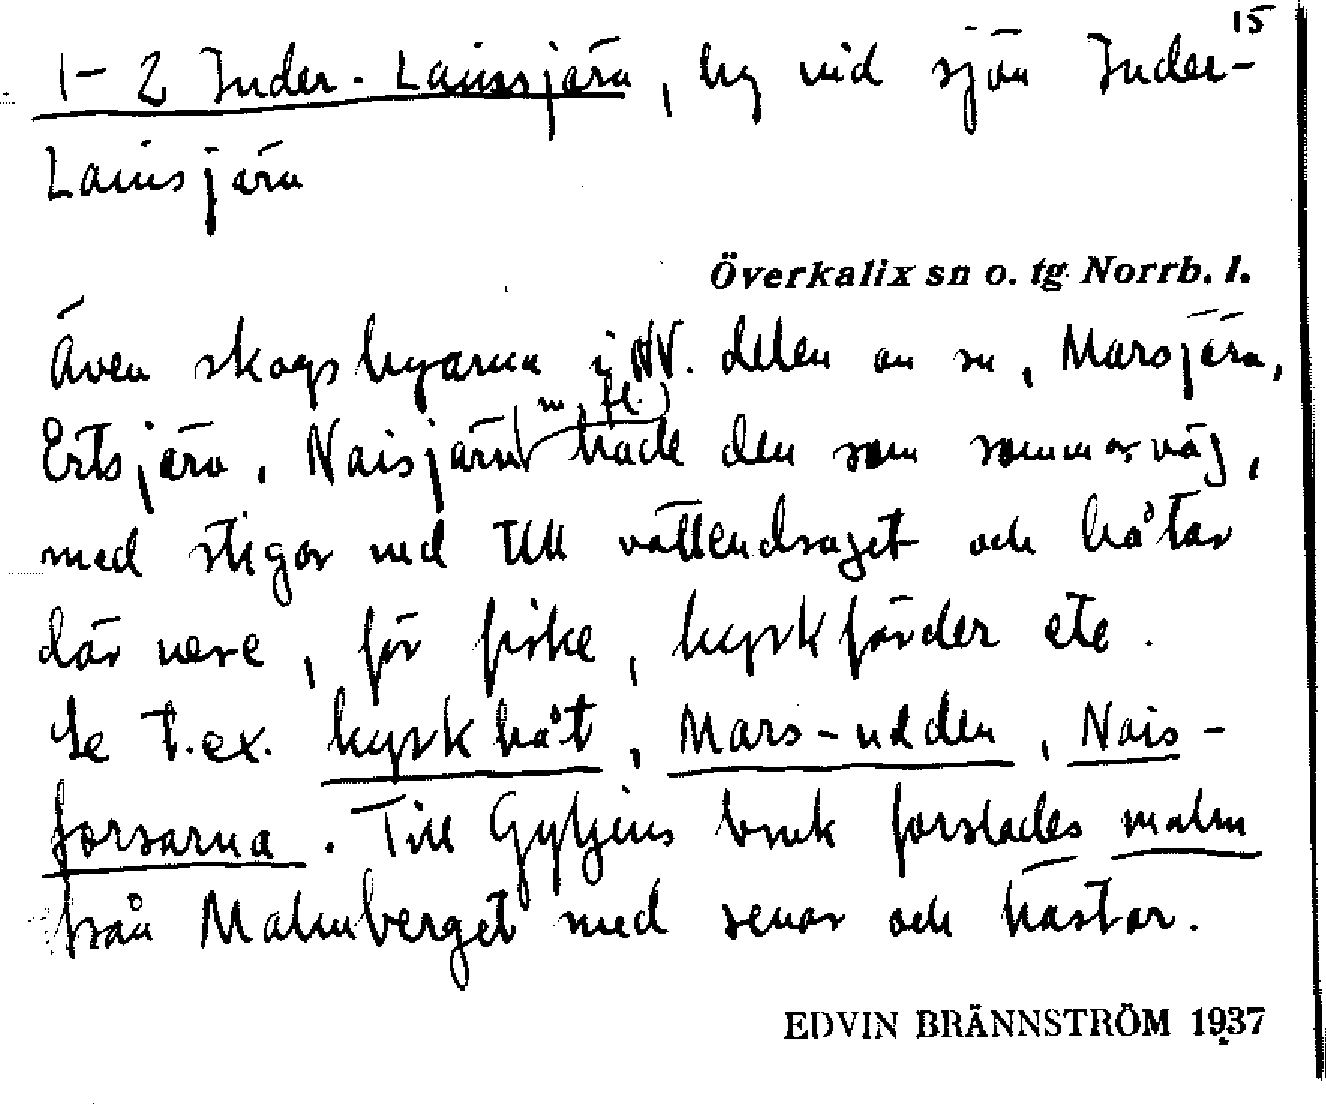 15
1-2 Inder-Lainsjärv, by vid sjön Inder-
Lainsjärv
Överkalix sn o. tg Norrb. l.
Även skogsbyarna i NV. delen av sn, Marsjärv,
Ertsjärv, Naisjärv (m. fl.) hade den som sommarväg,
med stigar ned till vattendraget och båtar
där nere, för fiske, kyrkfärder etc.
Se t.ex. kyrkbåt, Mars-udden, Nais-
forsarna. Till Gyljens bruk forslades malm
från Malmberget med renar och hästar.
EDVIN BRÄNNSTRÖM 1937